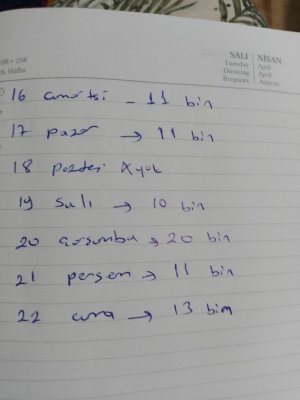 98 > 258
6. Hafta
SALI NİSAN
Tuesday April
Dienstag April
Вторник Апрель
16 cmrtsi - 11 bin
17 pazar → 11 bin
18 paztesi yok
19 salı → 10 bin
20 çarşamba → 20 bin
21 perşem → 11 bin
22 cuma → 13 bin